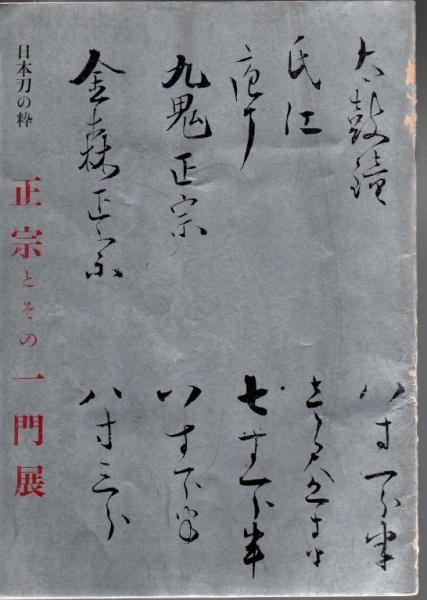 大鼓鐘 八寸一分半
氏江
庖丁 七寸一分半
九鬼正宗 八寸一分半
金森正宗 八寸三分
日本刀の粋
正宗とその一門展